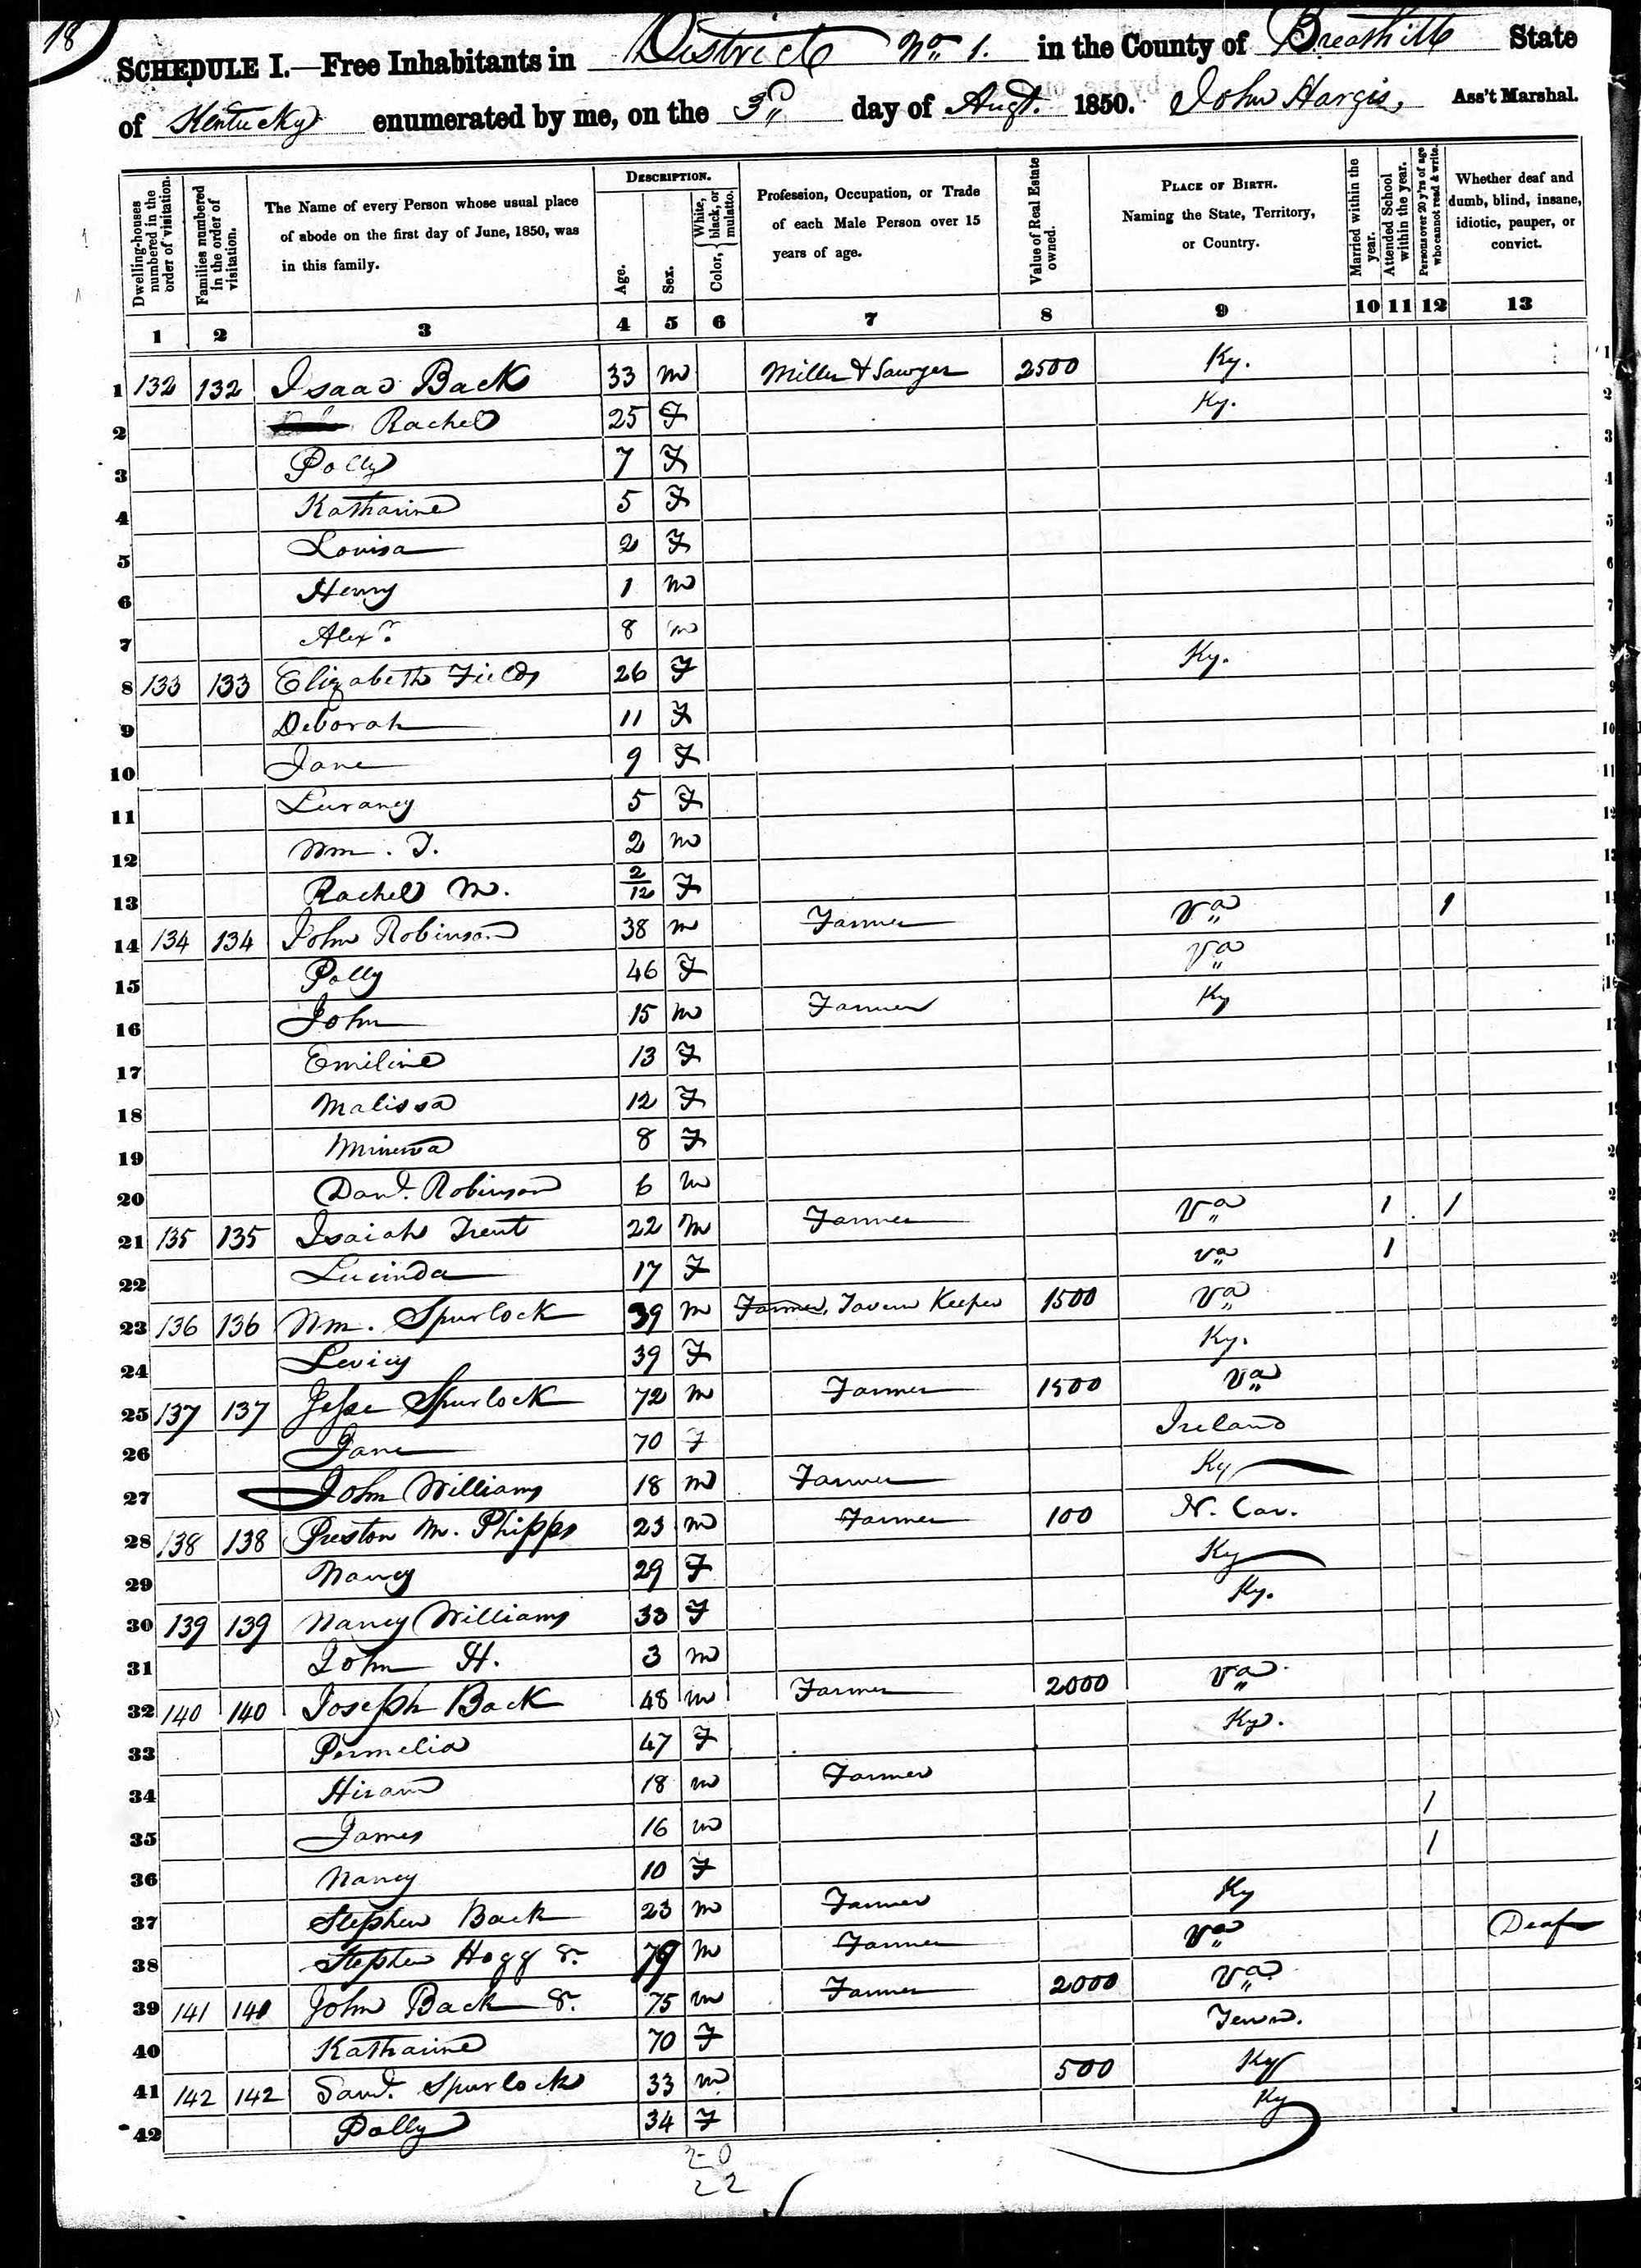 18
SCHEDULE I.—Free Inhabitants in District No. 1. in the County of Breathitt State
of Kentucky enumerated by me, on the 3d day of Augt. 1850. John Hargis, Ass't Marshal.
Dwelling-houses numbered in the order of visitation.
Families numbered in the order of visitation.
The Name of every Person whose usual place of abode on the first day of June, 1850, was in this family.
DESCRIPTION.
Age.
Sex.
Color, { White, black, or mulatto.
Profession, Occupation, or Trade of each Male Person over 15 years of age.
Value of Real Estate owned.
PLACE OF BIRTH. Naming the State, Territory, or Country.
Married within the year.
Attended School within the year.
Persons over 20 y'rs of age who cannot read & write.
Whether deaf and dumb, blind, insane, idiotic, pauper, or convict.
1 2 3 4 5 6 7 8 9 10 11 12 13
1 132 132 Isaac Back 33 m Miller & Sawyer 2500 Ky.
2 Rachel 25 F Ky.
3 Polly 7 F
4 Katharine 5 F
5 Louisa 2 F
6 Henry 1 m
7 Alexr. 8 m
8 133 133 Elizabeth Fields 26 F Ky.
9 Deborah 11 F
10 Jane 9 F
11 Luraney 5 F
12 Wm. T. 2 m
13 Rachel M. 2/12 F
14 134 134 John Robinson 38 m Farmer Va 1
15 Polly 46 F Va
16 John 15 m Farmer Ky
17 Emiline 13 F
18 Malissa 12 F
19 Minerva 8 F
20 Danl. Robinson 6 m
21 135 135 Isaiah Trent 22 m Farmer Va 1 1
22 Lucinda 17 F Va 1
23 136 136 Wm. Spurlock 39 m Farmer, Tavern Keeper 1500 Va
24 Levicy 39 F Ky.
25 137 137 Jesse Spurlock 72 m Farmer 1500 Va
26 Jane 70 F Ireland
27 John Williams 18 m Farmer Ky
28 138 138 Preston M. Phipps 23 m Farmer 100 N. Car.
29 Nancy 29 F Ky
30 139 139 Nancy Williams 33 F Ky.
31 John H. 3 m
32 140 140 Joseph Back 48 m Farmer 2000 Va
33 Permelia 47 F Ky.
34 Hiram 18 m Farmer
35 James 16 m 1
36 Nancy 10 F 1
37 Stephen Back 23 m Farmer Ky
38 Stephen Hogg Sr. 79 m Farmer Va Deaf
39 141 141 John Back Sr. 75 m Farmer 2000 Va
40 Katharine 70 F Tenn.
41 142 142 Saml. Spurlock 33 m 500 Ky
42 Polly 34 F Ky
20
22